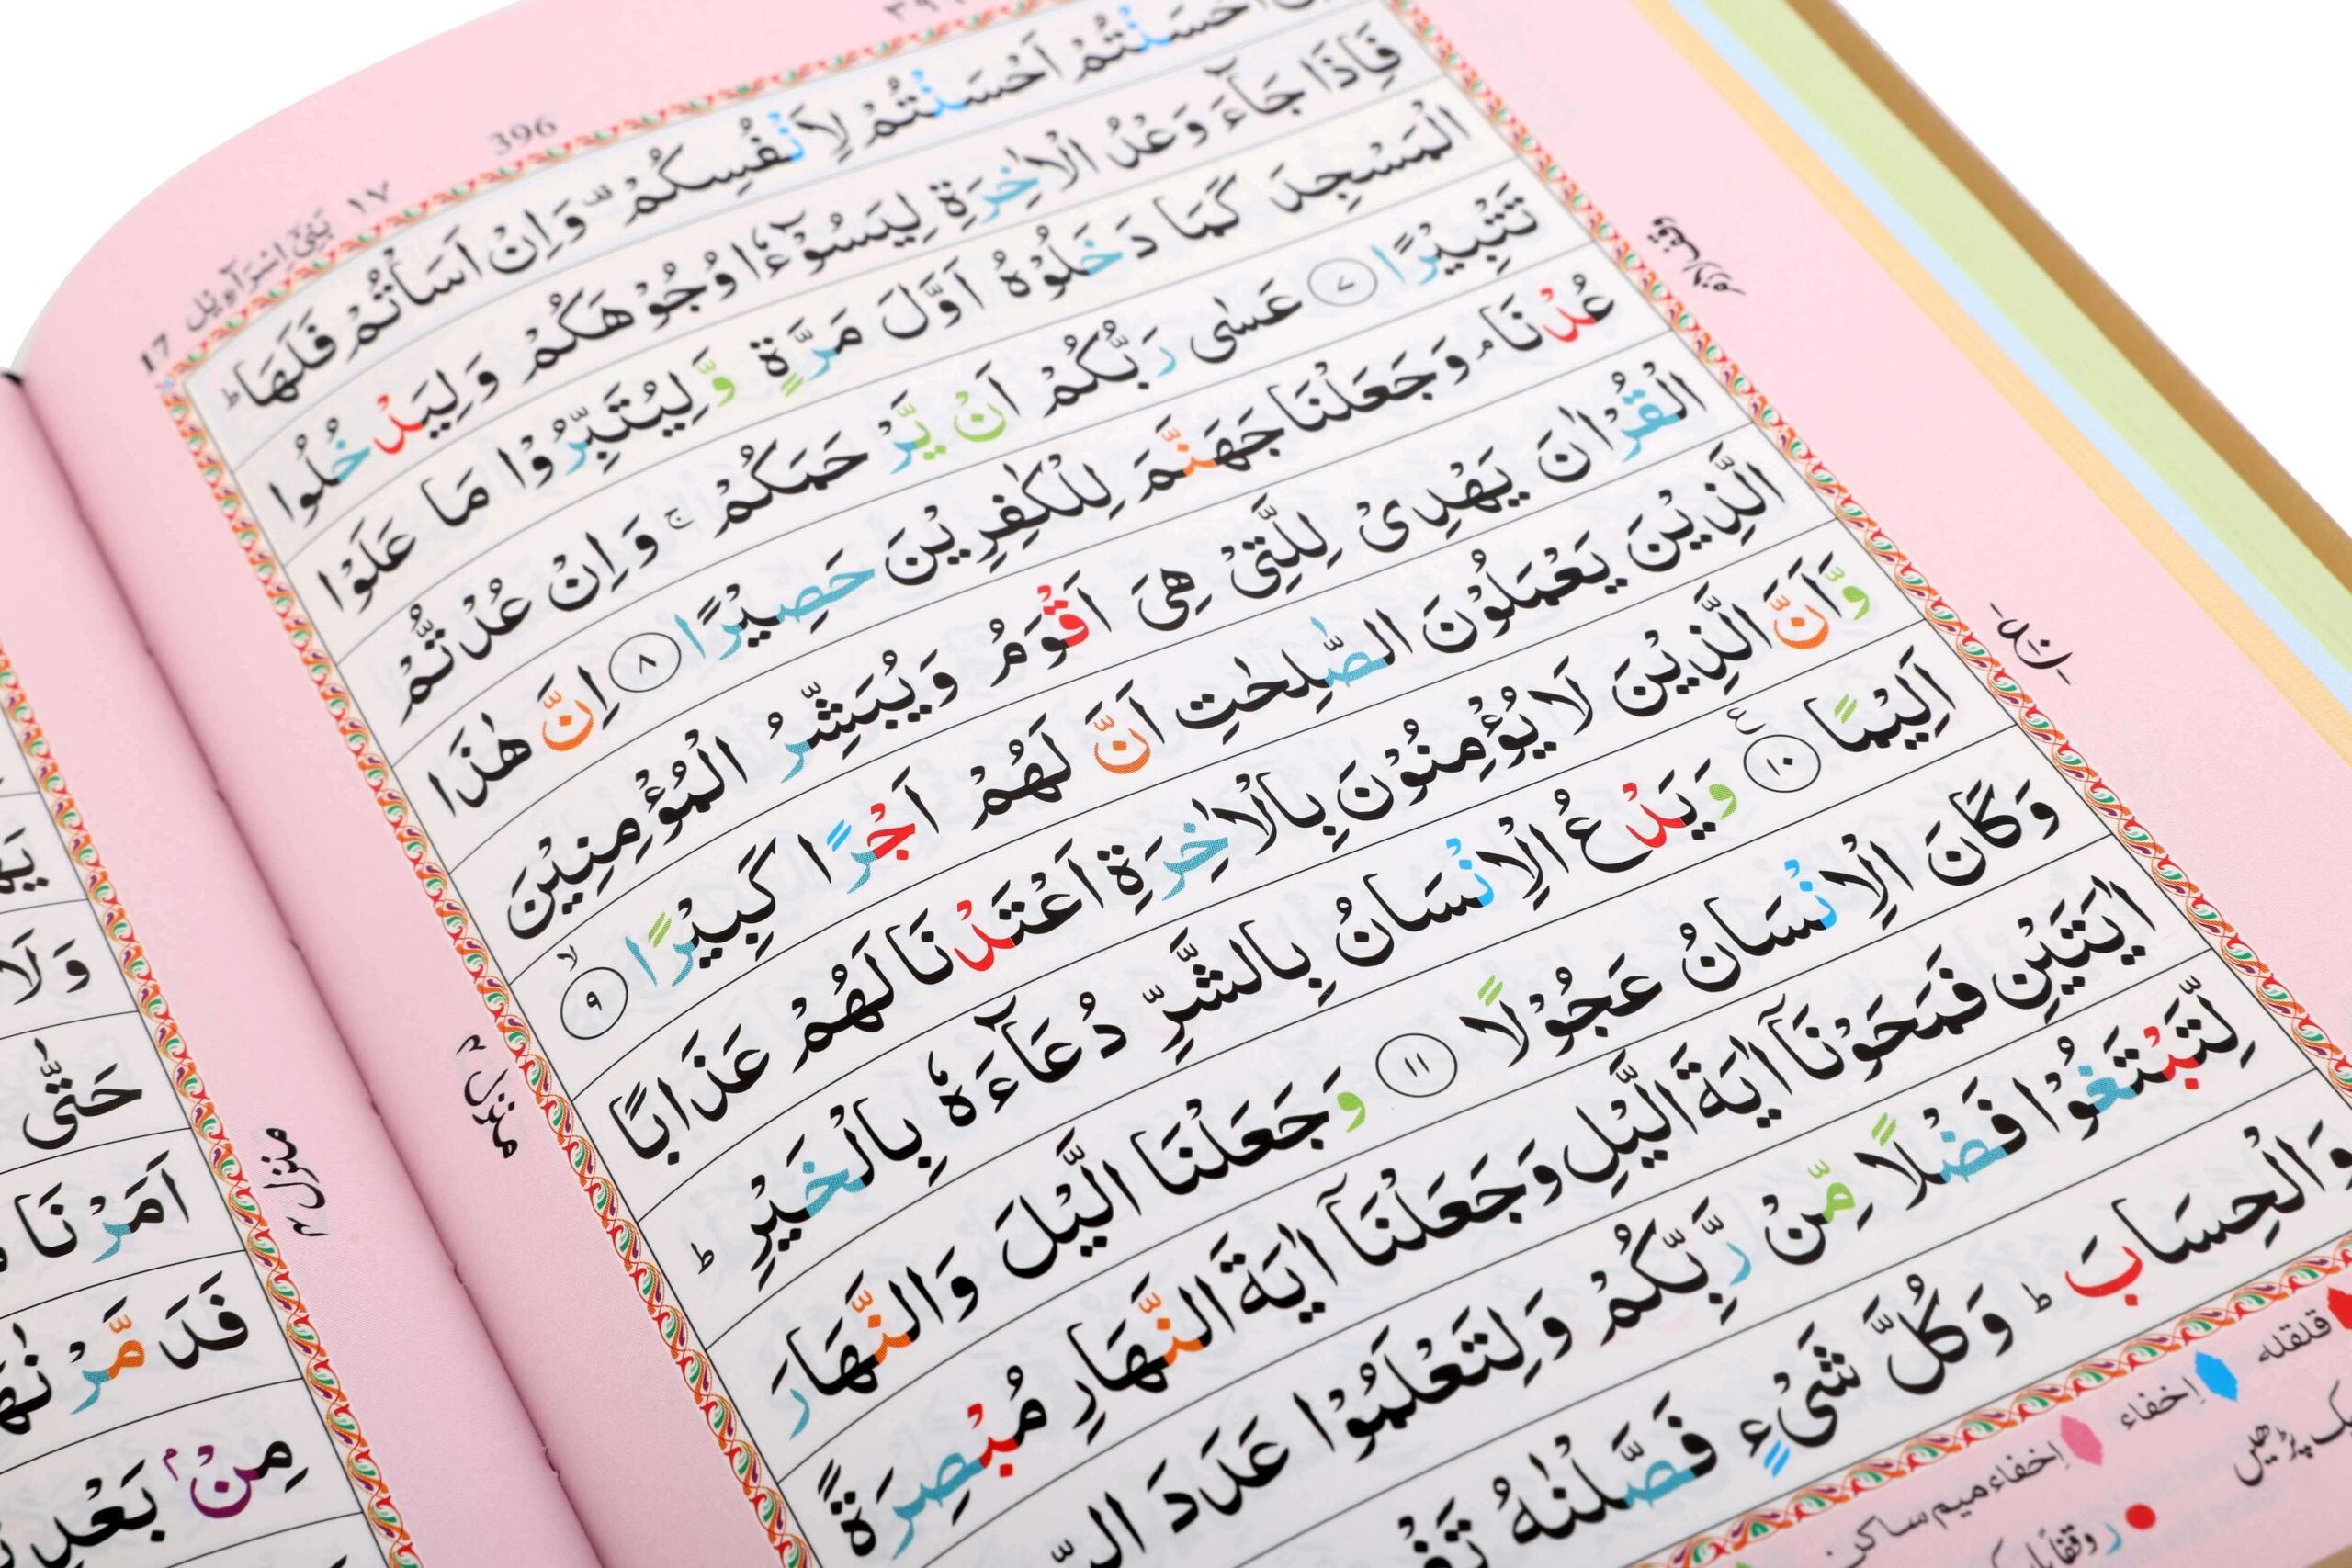 ٣٩٦
396
بَنِیْۤ اِسْرَآءِیْل ١٧
17
اَحْسَنْتُمْ اَحْسَنْتُمْ لِاَنْفُسِكُمْ ۫ وَاِنْ اَسَاْتُمْ فَلَهَا ؕ
فَاِذَا جَآءَ وَعْدُ الْاٰخِرَةِ لِيَسُوْٓءٗا وُجُوْهَكُمْ وَلِيَدْخُلُوا
الْمَسْجِدَ كَمَا دَخَلُوْهُ اَوَّلَ مَرَّةٍ وَّلِيُتَبِّرُوْا مَا عَلَوْا
تَتْبِيْرًا ٧ عَسٰى رَبُّكُمْ اَنْ يَّرْحَمَكُمْ ۚ وَاِنْ عُدْتُّمْ
عُدْنَا ۘ وَجَعَلْنَا جَهَنَّمَ لِلْكٰفِرِيْنَ حَصِيْرًا ٨ اِنَّ هٰذَا
الْقُرْاٰنَ يَهْدِىْ لِلَّتِىْ هِىَ اَقْوَمُ وَيُبَشِّرُ الْمُؤْمِنِيْنَ
الَّذِيْنَ يَعْمَلُوْنَ الصّٰلِحٰتِ اَنَّ لَهُمْ اَجْرًا كَبِيْرًا ۙ ٩
وَّاَنَّ الَّذِيْنَ لَا يُؤْمِنُوْنَ بِالْاٰخِرَةِ اَعْتَدْنَا لَهُمْ عَذَابًا
اَلِيْمًا ١٠ وَيَدْعُ الْاِنْسَانُ بِالشَّرِّ دُعَآءَهٗ بِالْخَيْرِ ؕ
وَكَانَ الْاِنْسَانُ عَجُوْلًا ١١ وَجَعَلْنَا الَّيْلَ وَالنَّهَارَ
اٰيَتَيْنِ فَمَحَوْنَاۤ اٰيَةَ الَّيْلِ وَجَعَلْنَاۤ اٰيَةَ النَّهَارِ مُبْصِرَةً
لِّتَبْتَغُوْا فَضْلًا مِّنْ رَّبِّكُمْ وَلِتَعْلَمُوْا عَدَدَ
وَالْحِسَابَ ؕ وَكُلَّ شَىْءٍ فَصَّلْنٰهُ
وقف لازم
منزل ٤
قلقله
اِخفاء
اِخفاء میم ساکن
وَلَا
حَتّٰى
منزل ٤
اَمَرْنَا
فَدَمَّرْنٰهَا
مِنْۢ بَعْدِ